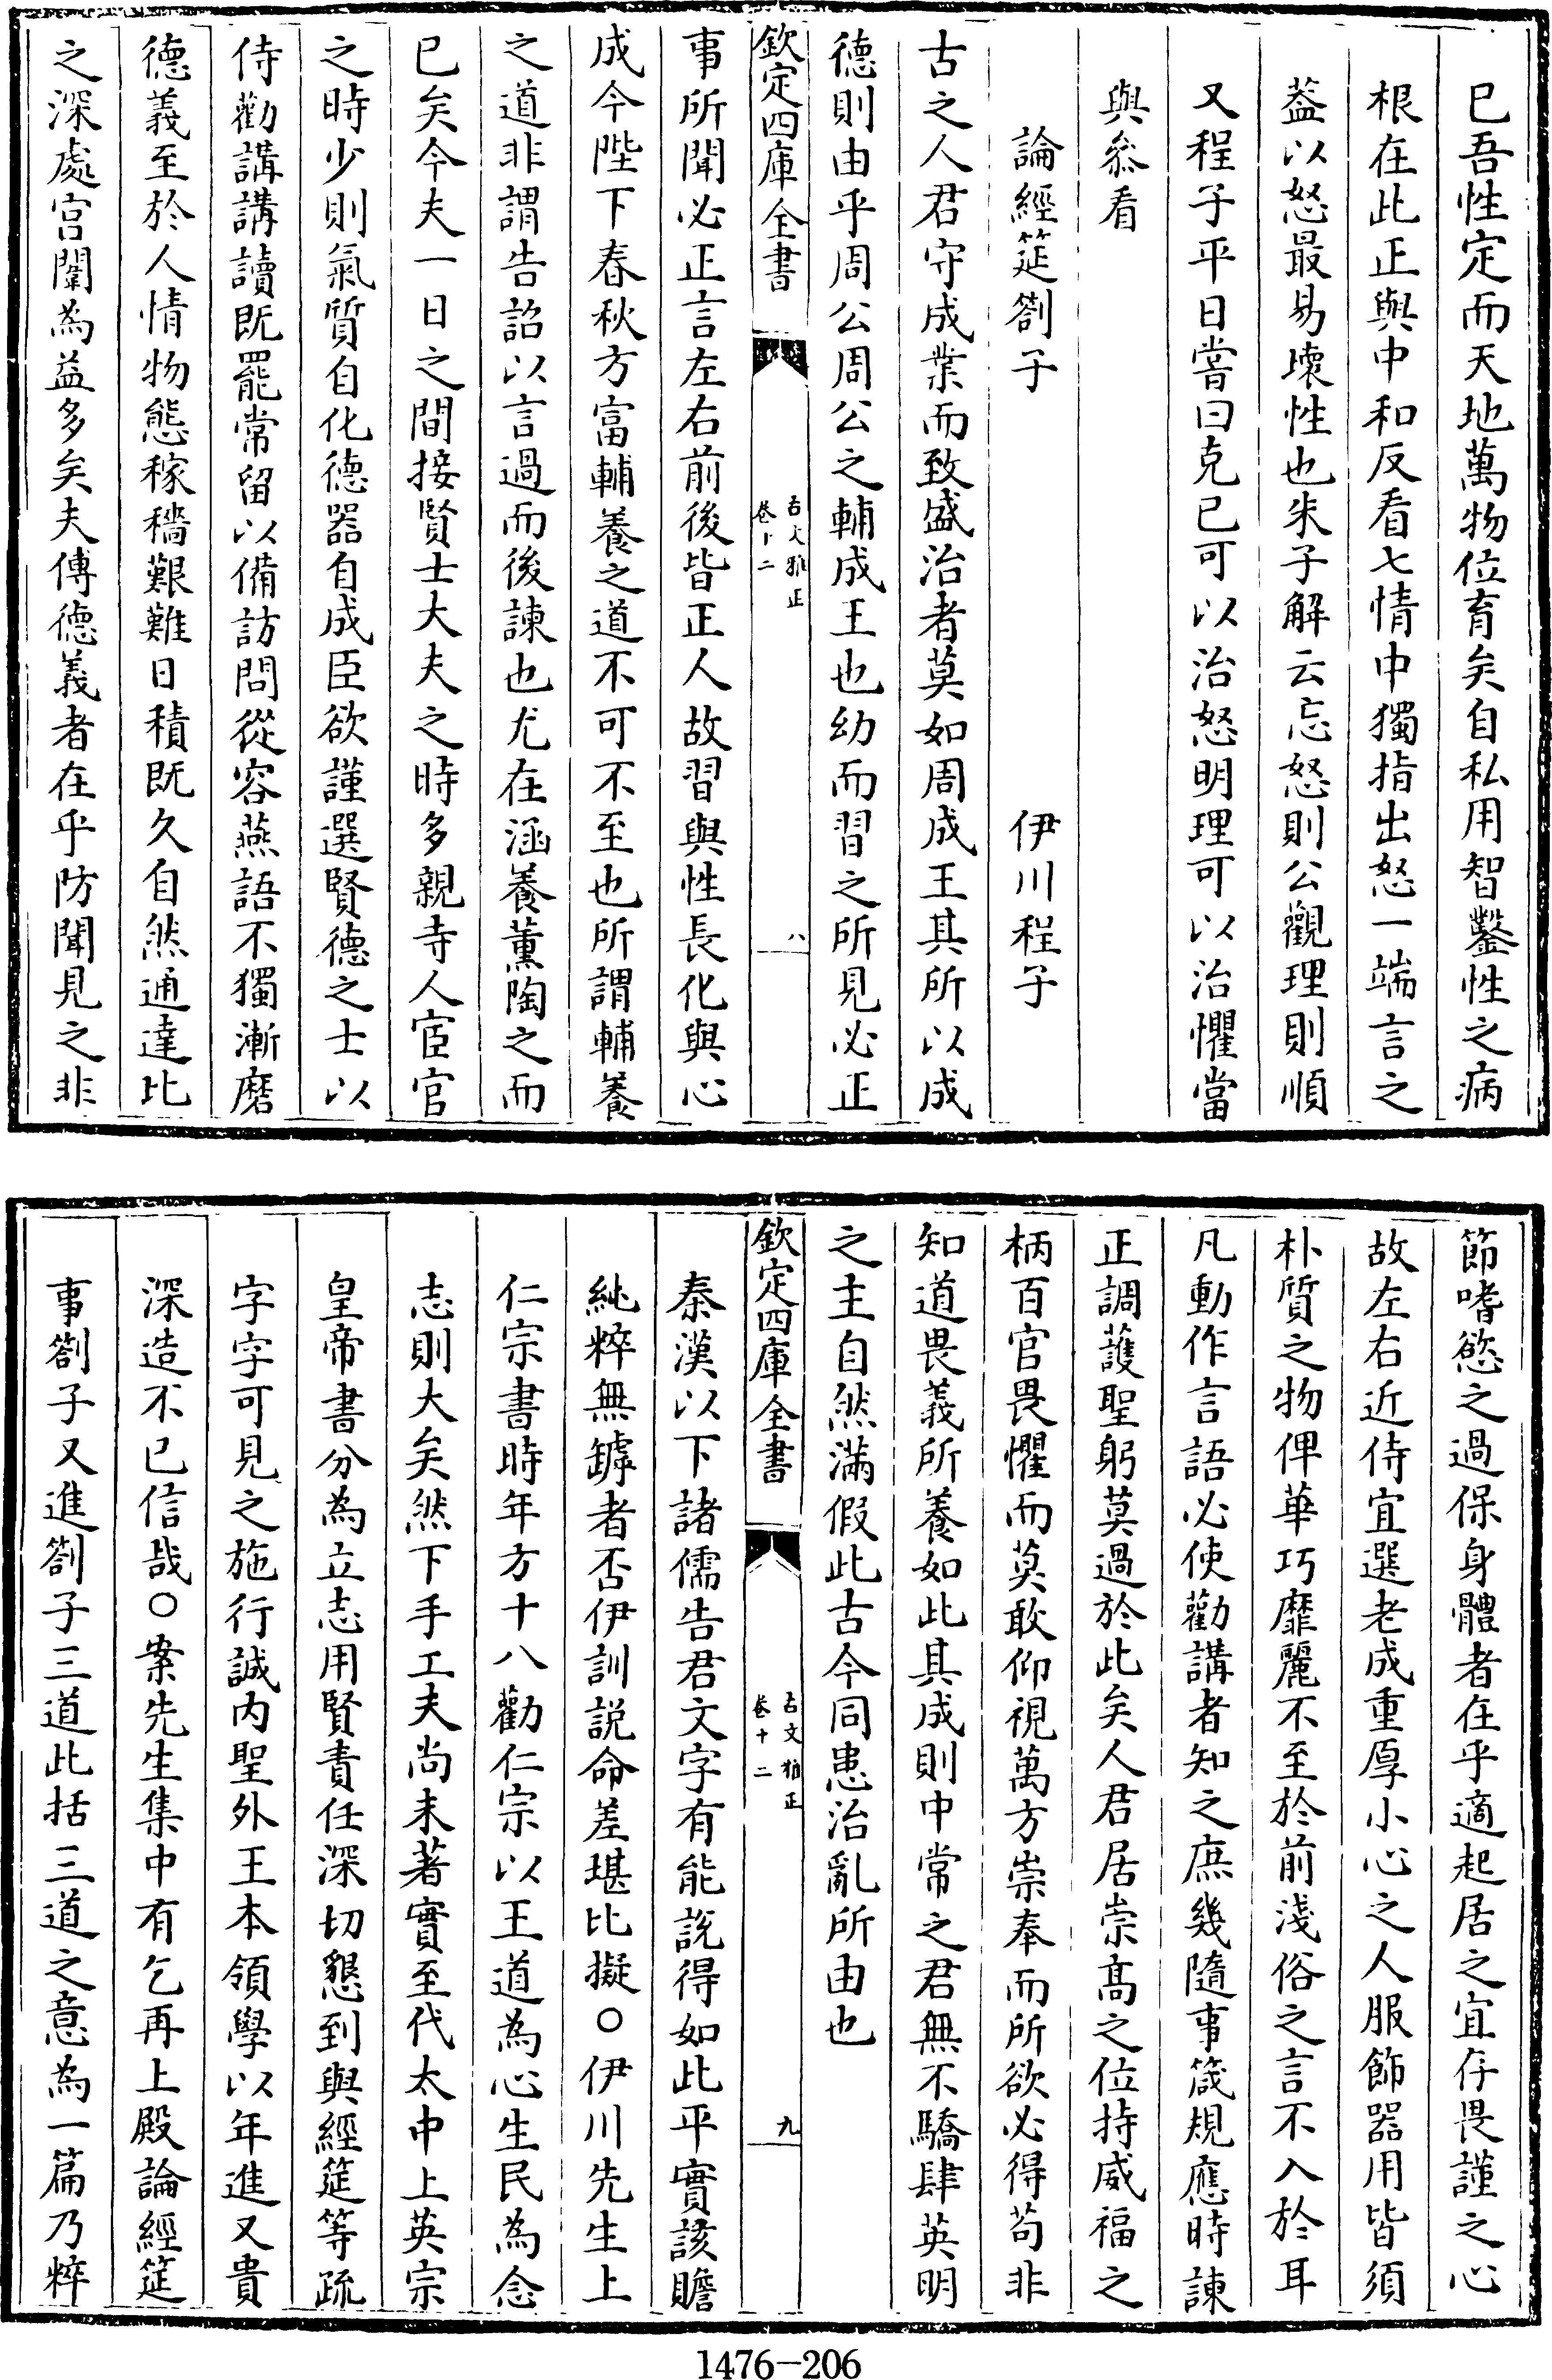 已吾性定而天地萬物位育矣自私用智鑿性之病
根在此正與中和反看七情中獨指出怒一端言之
葢以怒最易壞性也朱子解云忘怒則公觀理則順
又程子平日嘗曰克已可以治怒明理可以治懼當
與叅看
論經筵劄子 伊川程子
古之人君守成業而致盛治者莫如周成王其所以成
德則由乎周公周公之輔成王也幼而習之所見必正
欽定四庫全書 古文雅正 卷十二 八
事所聞必正言左右前後皆正人故習與性長化與心
成今陛下春秋方富輔養之道不可不至也所謂輔養
之道非謂告詔以言過而後諫也尤在涵養薰陶之而
已矣今夫一日之間接賢士大夫之時多親寺人宦官
之時少則氣質自化德器自成臣欲謹選賢德之士以
侍勸講講讀既罷常留以備訪問從容燕語不獨漸磨
德義至於人情物態稼穡艱難日積既久自然通達比
之深處宫闈為益多矣夫傅德義者在乎防聞見之非
節嗜慾之過保身體者在乎適起居之宜存畏謹之心
故左右近侍宜選老成重厚小心之人服飾器用皆須
朴質之物俾華巧靡麗不至於前淺俗之言不入於耳
凡動作言語必使勸講者知之庶幾隨事箴規應時諫
正調護聖躬莫過於此矣人君居崇髙之位持威福之
柄百官畏懼而莫敢仰視萬方崇奉而所欲必得苟非
知道畏義所養如此其成則中常之君無不驕肆英明
之主自然滿假此古今同患治亂所由也
欽定四庫全書 古文雅正 卷十二 九
秦漢以下諸儒告君文字有能説得如此平實該贍
純粹無罅者否伊訓説命差堪比擬○伊川先生上
仁宗書時年方十八勸仁宗以王道為心生民為念
志則大矣然下手工夫尚未著實至代太中上英宗
皇帝書分為立志用賢責任深切懇到與經筵等疏
字字可見之施行誠内聖外王本領學以年進又貴
深造不已信哉○案先生集中有乞再上殿論經筵
事劄子又進劄子三道此括三道之意為一篇乃粹
1476-206